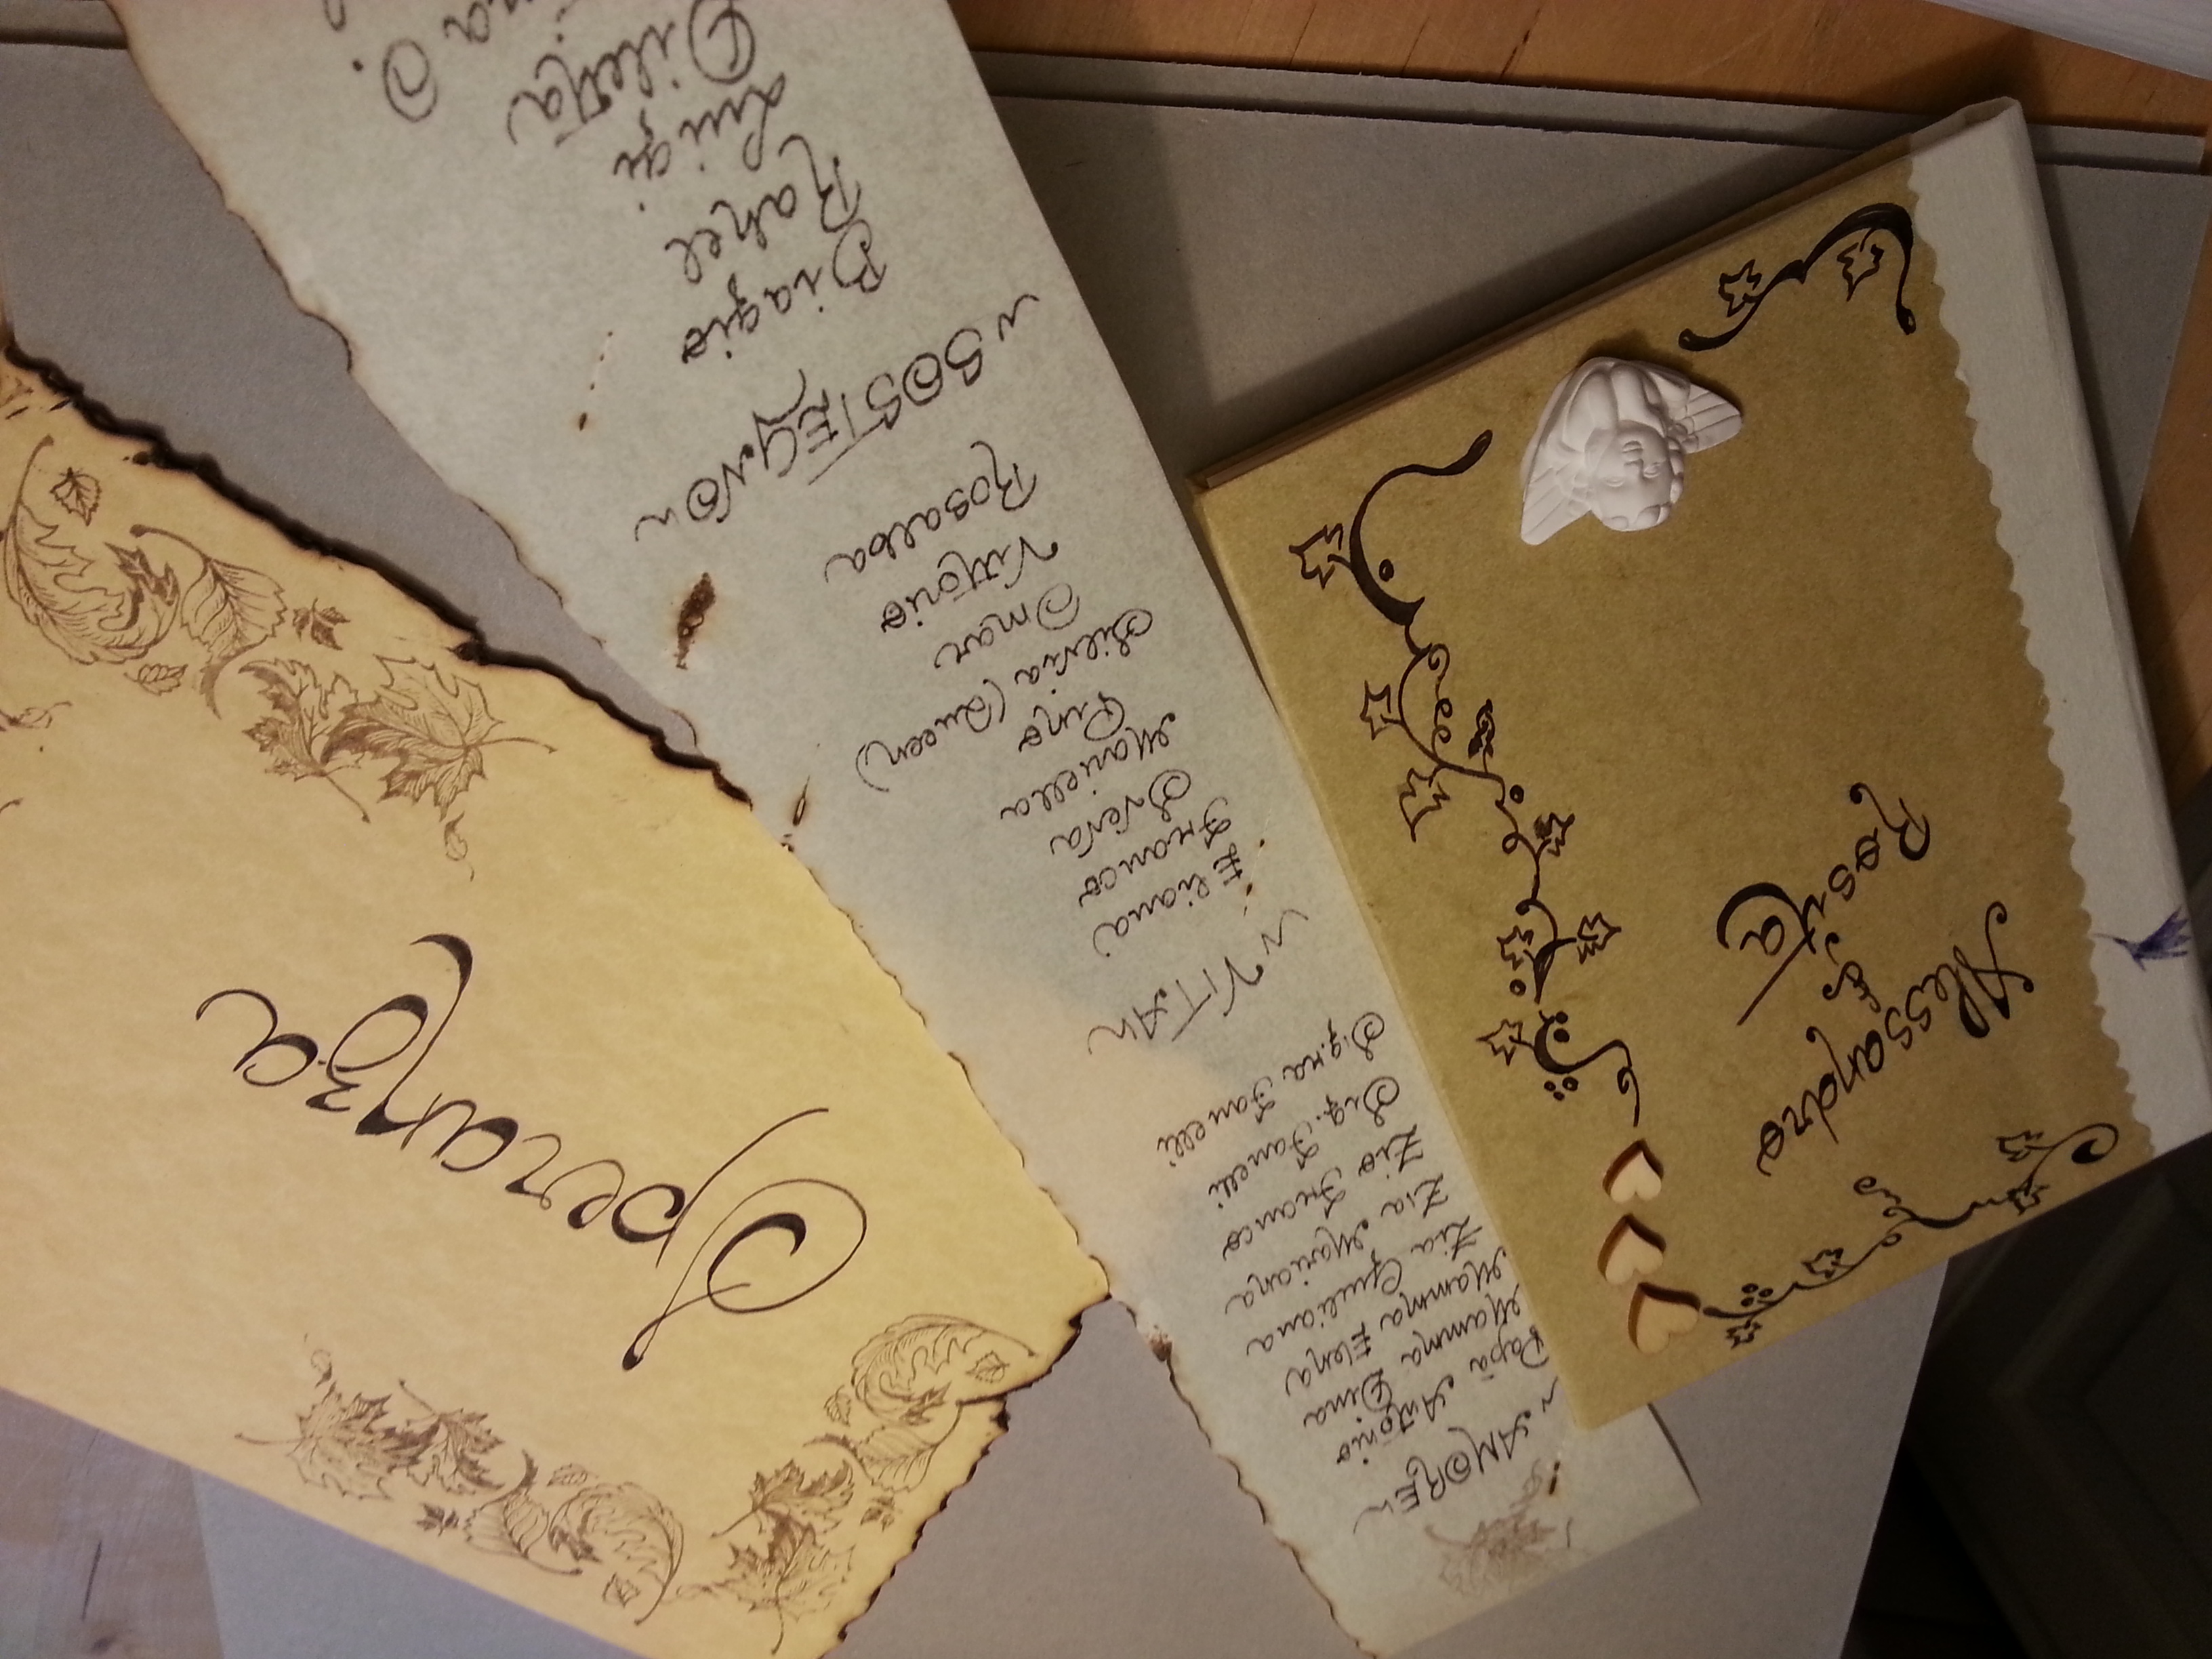 Speranza
AMORE
Papà Antonio
Mamma Dina
Mamma Elena
Zia Giuliana
Zia Mariana
Zio Franco
Sig. Fanelli
Sig.na Fanelli
VITA
Eliana
Franco
Sveva
Mariella
Pino
Silvia (Queen)
Omar
Vittorio
Rosalba
SOSTEGNO
Biagio
Rahel
Luigi
O.
Alessandro
&
Rosita